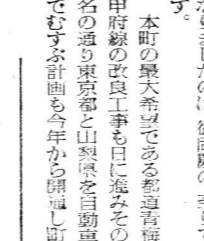 す。
本町の最大希望である都道青梅
甲府線の改良工事も日に進みその
名の通り東京都と山梨県を自動車
でむすぶ計画も今年から開通し町